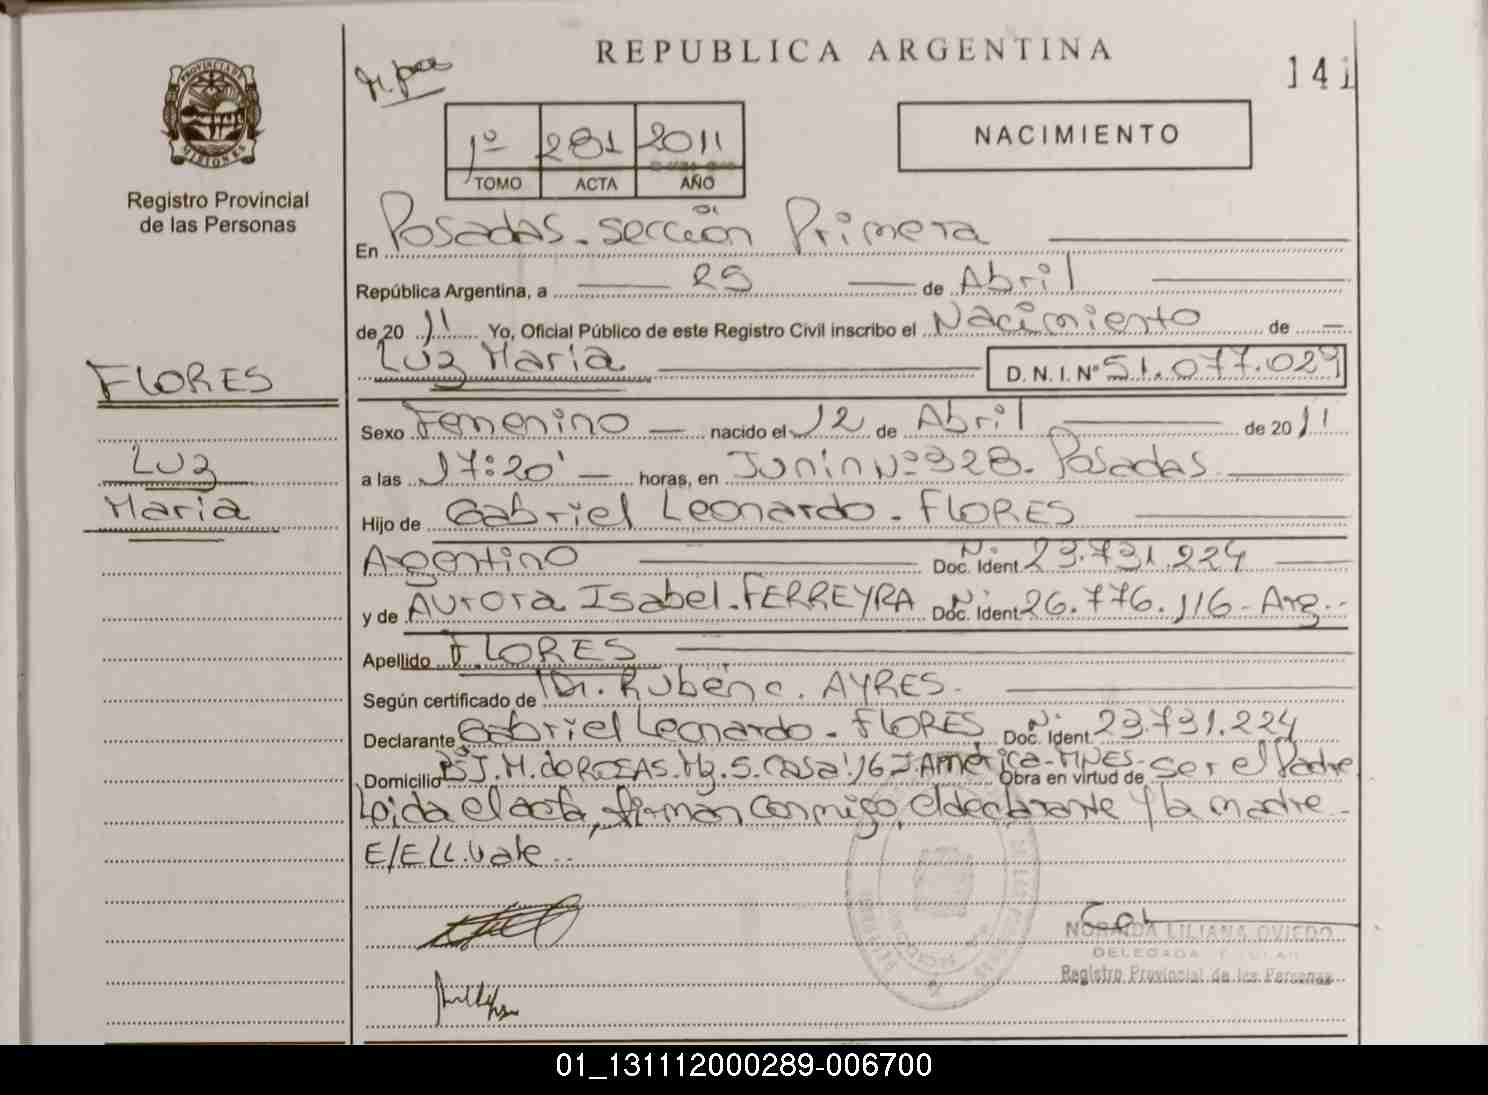 REPUBLICA ARGENTINA
141
PROVINCIA DE MISIONES
Registro Provincial
de las Personas
1º 281 2011
TOMO ACTA AÑO
NACIMIENTO
En Posadas. sección Primera
República Argentina, a 25 de Abril
de 2011 Yo, Oficial Público de este Registro Civil inscribo el Nacimiento de
Luz María D.N.I. Nº 51.077.029
FLORES
Luz
María
Sexo Femenino nacido el 12 de Abril de 2011
a las 17:20' horas, en Junín Nº 328. Posadas
Hijo de Gabriel Leonardo. FLORES
Argentino Doc. Ident. 23.731.224
y de Aurora Isabel. FERREYRA Doc. Ident. 26.776.116 - Arg.
Apellido FLORES
Según certificado de Dr. Rubén c. AYRES.
Declarante Gabriel Leonardo. FLORES Doc. Ident. 23.731.224
Domicilio Bº J.M. de ROSAS. Mz. 5. Casa 16 J. América - MNES. Obra en virtud de ser el Padre
Leída el acta, firman conmigo, el declarante y la madre.
E/E LL. vale.
NORAIDA LILIANA OVIEDO
DELEGADA TITULAR
Registro Provincial de las Personas
01_131112000289-006700